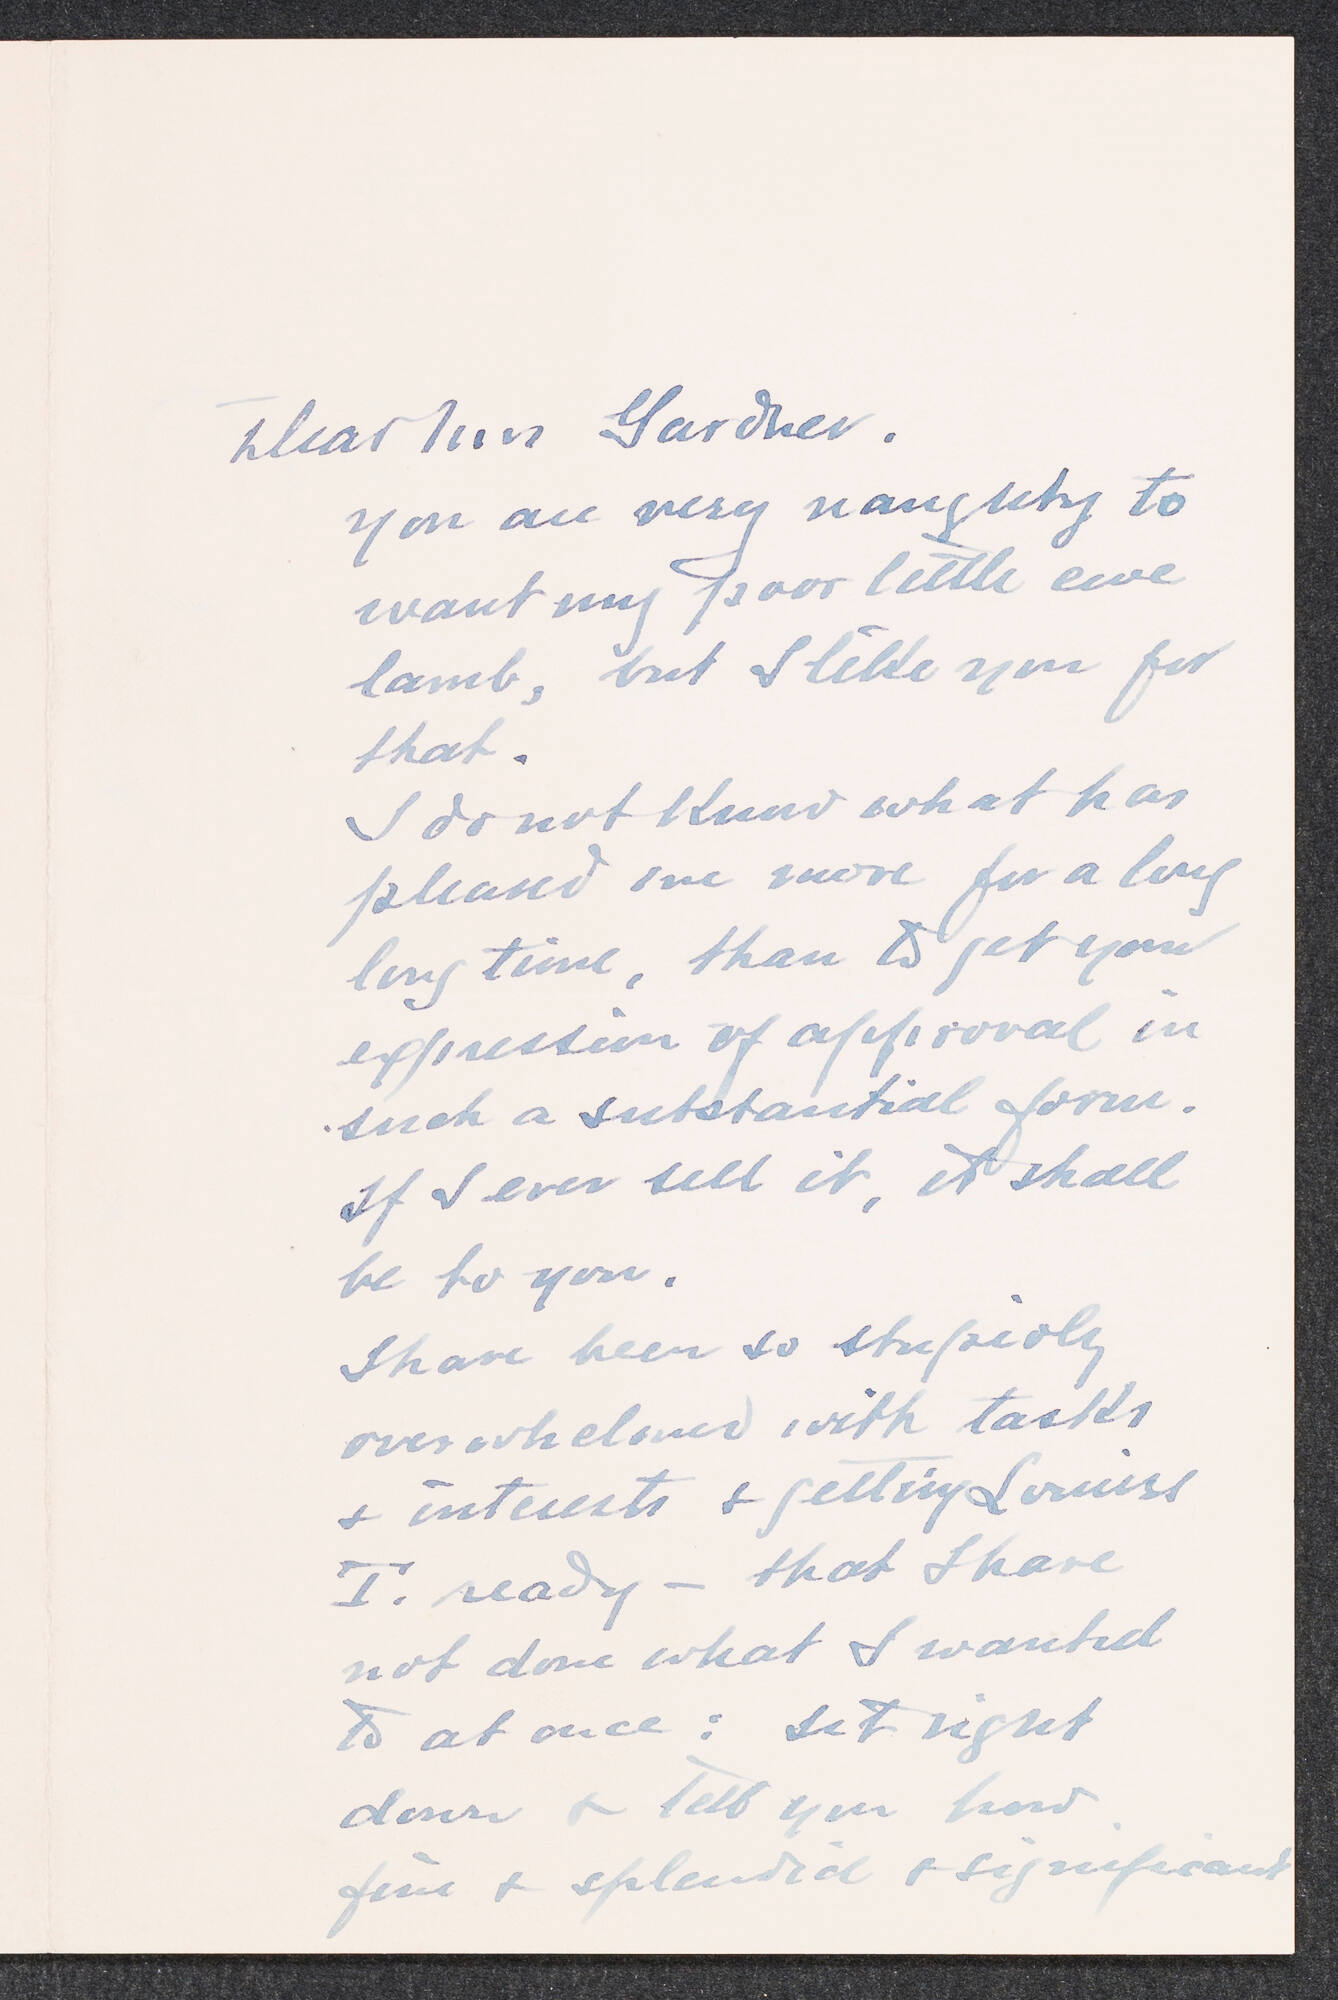 Dear Mrs Gardner.
you are very naughty to
want my poor little ewe
lamb, but I like you for
that.
I do not know what has
pleased me more for a long
long time, than to get your
expression of approval in
such a substantial form.
If I ever sell it, it shall
be to you.
I have been so stupidly
overwhelmed with tasks
& interests & getting Louise
T. ready – that I have
not done what I wanted
to at once: set right
down & tell you how
fine & splendid & significant